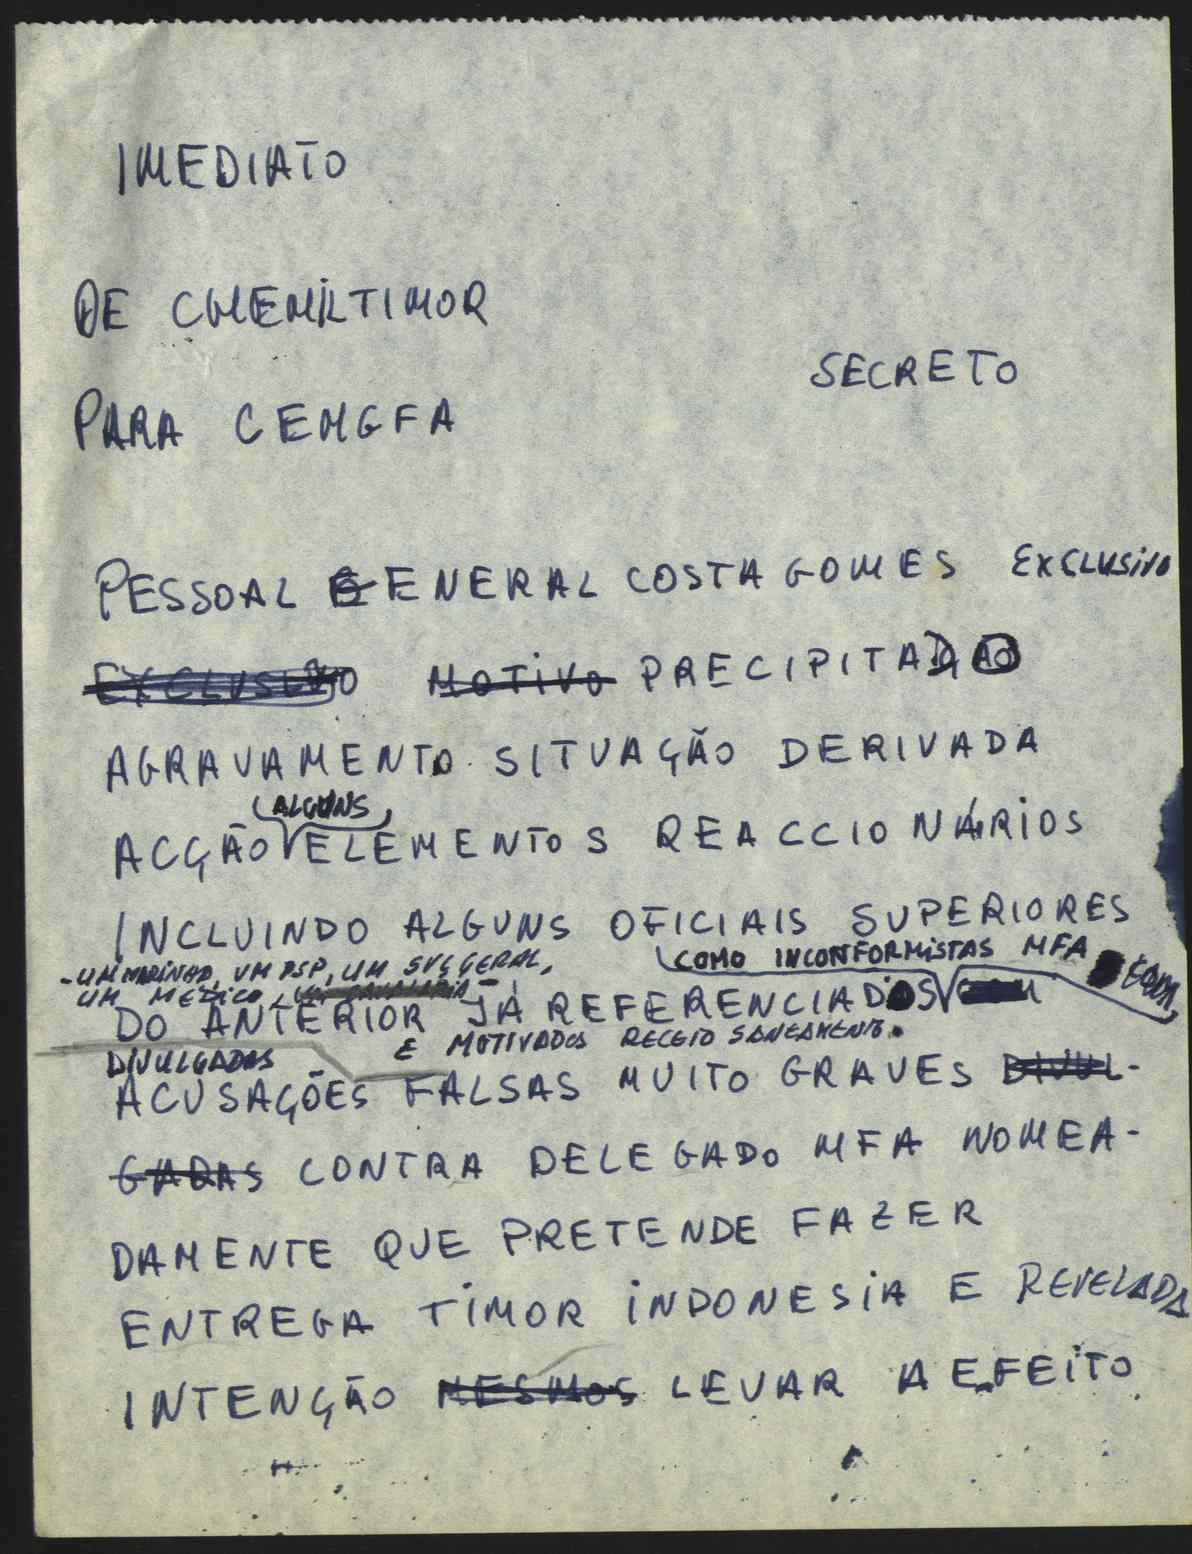 IMEDIATO
DE CHEMILTIMOR
SECRETO
PARA CEMGFA
PESSOAL GENERAL COSTA GOMES EXCLUSIVO
EXCLUSIVO MOTIVO PRECIPITADO
AGRAVAMENTO SITUAÇÃO DERIVADA
ALGUNS
ACÇÃO ELEMENTOS REACCIONÁRIOS
INCLUINDO ALGUNS OFICIAIS SUPERIORES
COMO INCONFORMISTAS MFA COM
- UM MARINHA, UM PSP, UM SVÇ GERAL,
UM MÉDICO, UM CAVALARIA -
DO ANTERIOR JÁ REFERENCIADOS COM
E MOTIVADOS RECEIO SANEAMENTO.
DIVULGADAS
ACUSAÇÕES FALSAS MUITO GRAVES DIVUL-
GADAS CONTRA DELEGADO MFA NOMEA-
DAMENTE QUE PRETENDE FAZER
ENTREGA TIMOR INDONESIA E REVELADA
INTENÇÃO MESMOS LEVAR A EFEITO